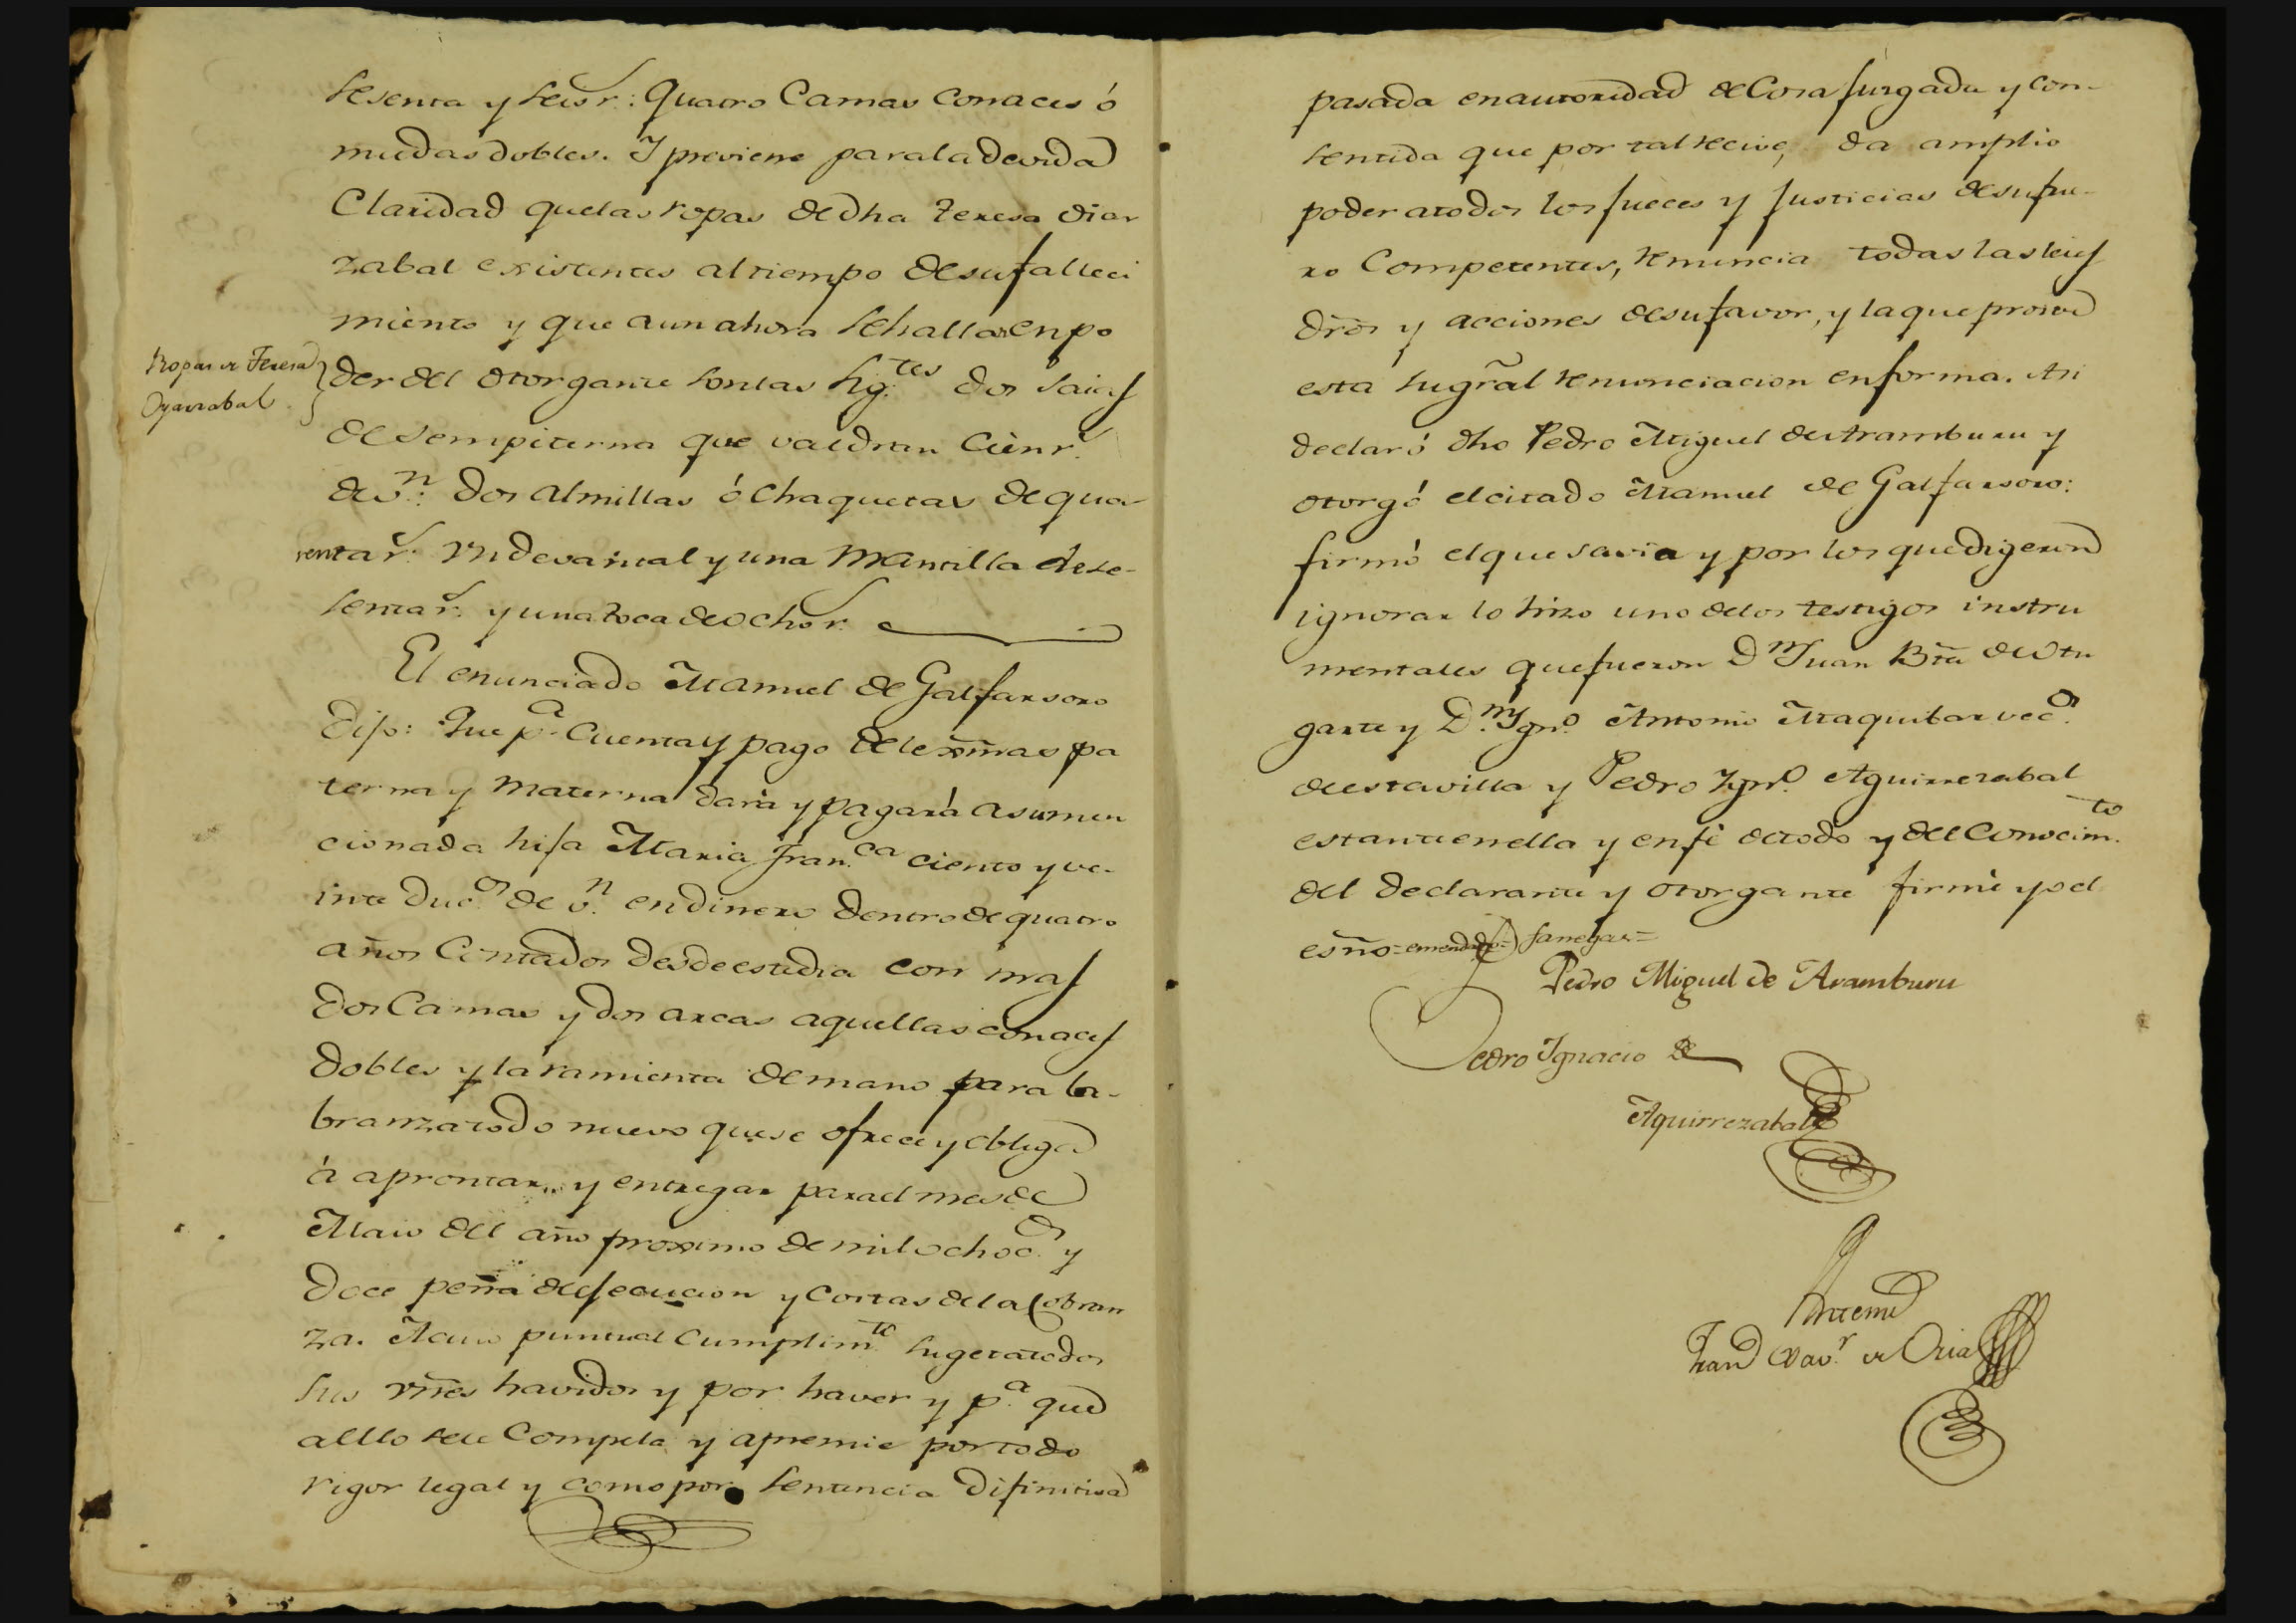 sesenta y seis r.s: Quatro Camas con aces ó
mudas dobles. Y previene para la devida
Claridad que las ropas de dha Teresa Oiar
zabal existentes al tiempo de su falleci
miento y que aun ahora se hallan en po
Ropas de Teresa
Oyarzabal
der del otorgante son las sig.tes dos saias
de sempiterna que valdran cien r.s
de v.n: dos almillas ó chaquetas de qua
renta r.s un devantal y una mantilla de se-
senta r.s y una toca de ocho r.s
El enunciado Manuel de Galfarsoro
dijo: Que p.a Cuenta y pago de lexmas pa
terna y materna dará y pagará a su men
cionada hija Maria Fran.ca ciento y ve-
inte duc.s de v.n en dinero dentro de quatro
años Contados desde este dia con mas
dos Camas y dos arcas aquellas con aces
dobles y la ramienta de mano para la-
branza todo nuevo que se ofrece y obliga
á aprontar y entregar para el mes de
Maio del año proximo de mil ochoc.s y
doce pena de execucion y costas de la Cobran
za. A cuio puntual cumplim.to sugeta todos
sus vnes havidos y por haver y p.a que
a ello se le Compela y apremie por todo
rigor legal y como por sentencia difinitiva
pasada en autoridad de Cosa jusgada y con-
sentida que por tal recive, da amplio
poder a todos los jueces y justicias de su fue-
ro Competentes, renuncia todas las leies
dros y acciones de su favor, y la que proive
esta su gral renunciacion en forma. Asi
declaró dho Pedro Miguel de Aramburu y
otorgó el citado Manuel de Galfarsoro:
firmó el que savia y por los que digeron
ignorar lo hizo uno de los testigos instru
mentales que fueron D.n Juan Bta de Otu
garte y D.n Ygn.o Antonio Maquibar vec.s
de esta villa y Pedro Ygn.o Aguirrezabal
estante en ella y en fé de todo y del Conocim.to
del declarante y otorgante firmé yo el
esno = emendado = fanegas =
Pedro Miguel de Aramburu
Pedro Ignacio de
Aguirrezabal
Ante mi
Fran.co Xav.r de Oria